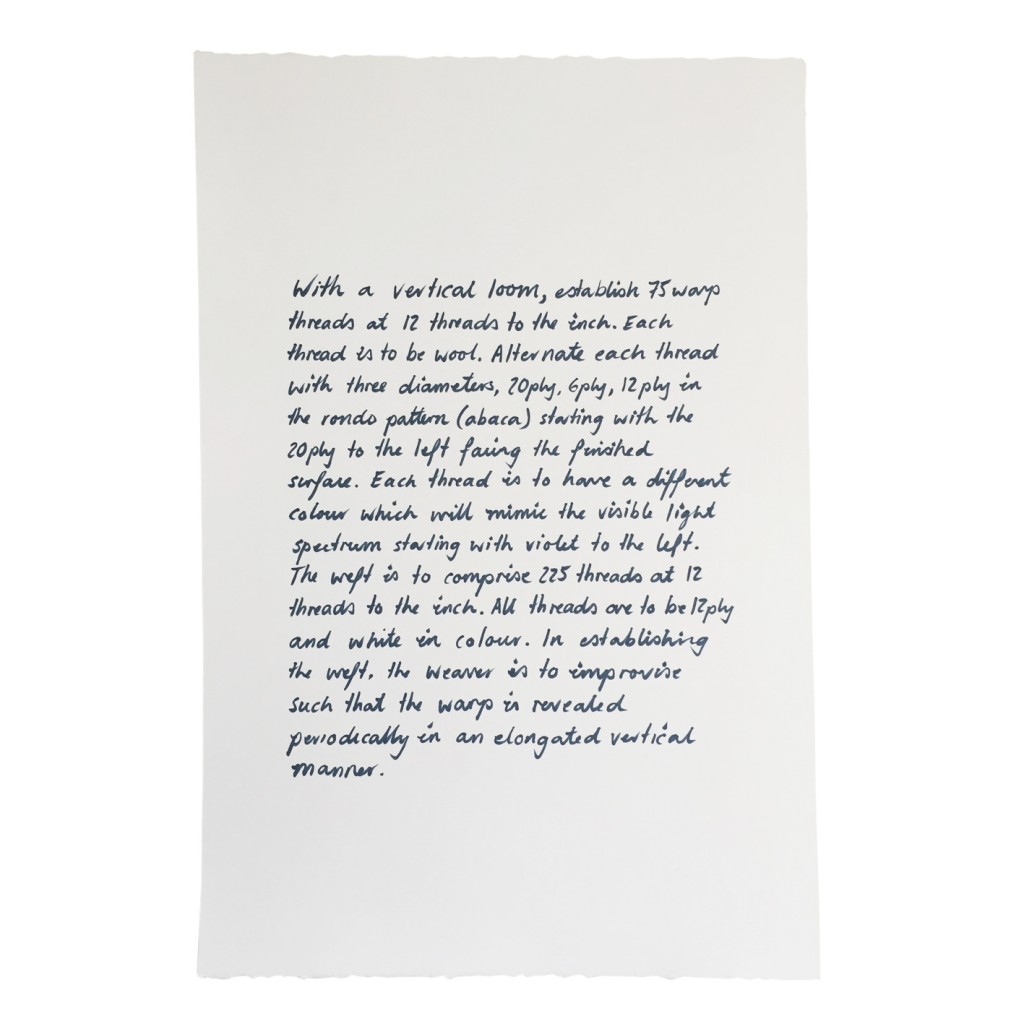 With a vertical loom, establish 75 warp
threads at 12 threads to the inch. Each
thread is to be wool. Alternate each thread
with three diameters, 20ply, 6ply, 12ply in
the rondo pattern (abaca) starting with the
20ply to the left facing the finished
surface. Each thread is to have a different
colour which will mimic the visible light
spectrum starting with violet to the left.
The weft is to comprise 225 threads at 12
threads to the inch. All threads are to be 12ply
and white in colour. In establishing
the weft, the weaver is to improvise
such that the warp is revealed
periodically in an elongated vertical
manner.